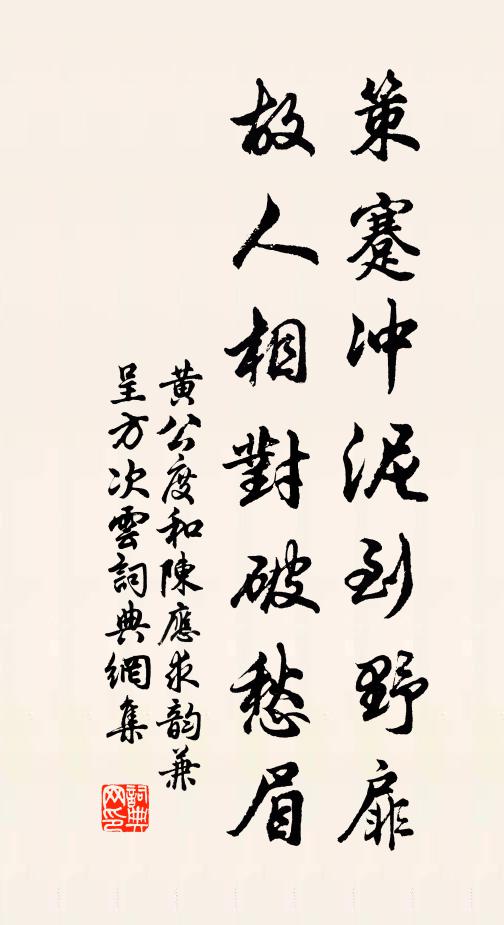 策蹇冲泥到野扉
故人相對破愁眉
黃公度和陳應求韵兼
呈方次雲詞典網集
詞典
网印